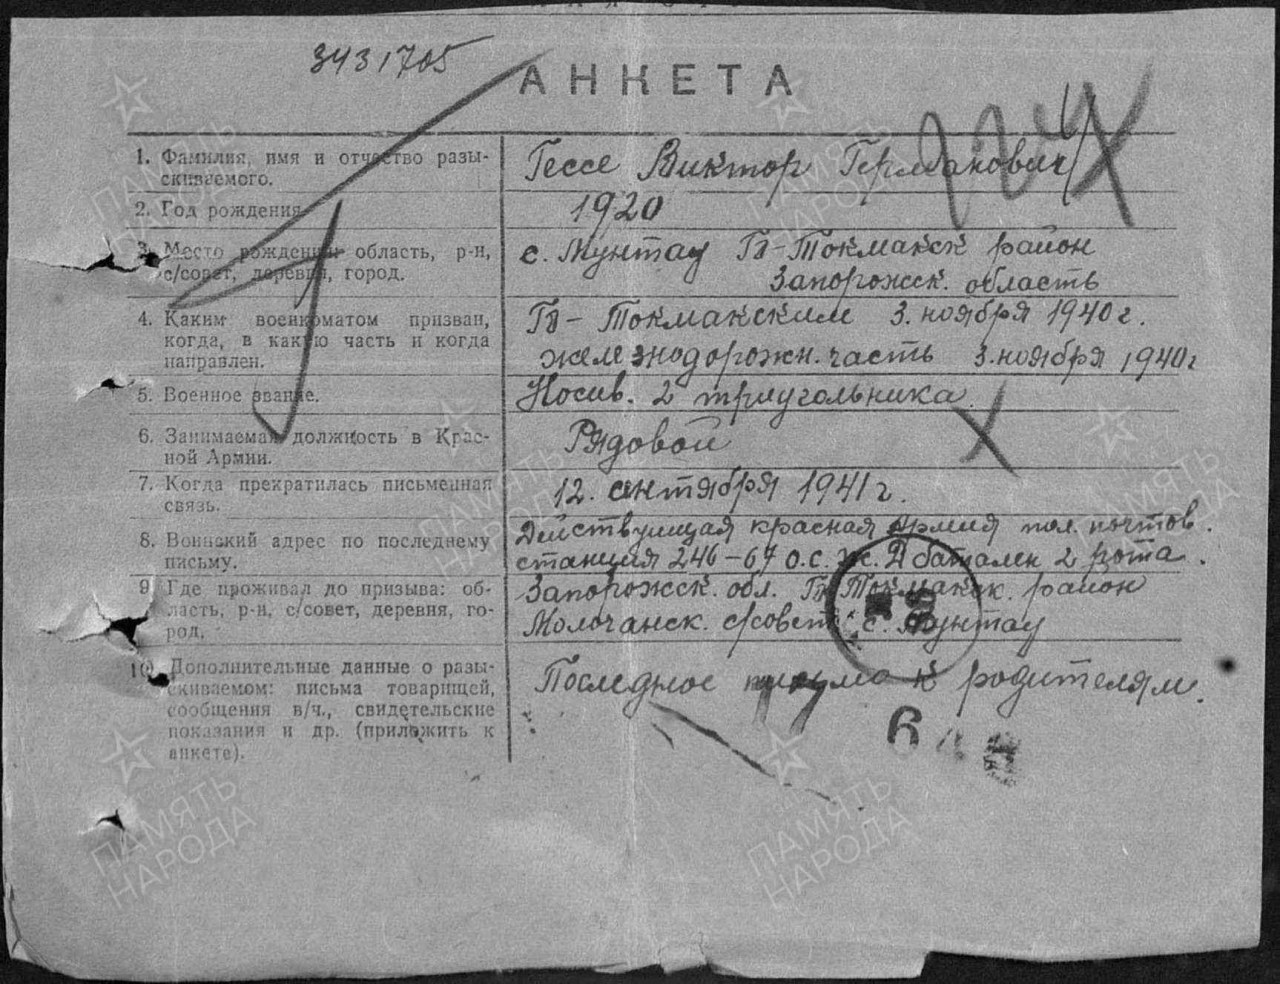 3431705
АНКЕТА
1. Фамилия, имя и отчество разы-
скиваемого.
Гессе Виктор Германович
2. Год рождения
1920
3. Место рождения: область, р-н,
с/совет, деревня, город.
с. Мунтау Б-Токмакск район
Запорожск. область
4. Каким военкоматом призван,
когда, в какую часть и когда
направлен.
Б-Токмакским 3. ноября 1940 г.
железнодорожн. часть 3. ноября 1940 г
5. Военное звание.
Носив. 2 триугольника.
6. Занимаемая должность в Крас-
ной Армии.
Рядовой
7. Когда прекратилась письменная
связь.
12. сентября 1941 г.
8. Воинский адрес по последнему
письму.
Действующая красная Армия пол. почтов.
станция 246-67 О.С. Ж. Д батален 2 рота.
9. Где проживал до призыва: об-
ласть, р-н, с/совет, деревня, го-
род.
Запорожск. обл. Б. Токмакск. район
Молочанск. с/совет с. Мунтау
10. Дополнительные данные о разы-
скиваемом: письма товарищей,
сообщения в/ч., свидетельские
показания и др. (приложить к
анкете).
Последное письмо к родителям.
6
ПАМЯТЬ
НАРОДА
ПАМЯТЬ
НАРОДА
ПАМЯТЬ
НАРОДА
ПАМЯТЬ
НАРОДА
ПАМЯТЬ
НАРОДА
ПАМЯТЬ
НАРОДА